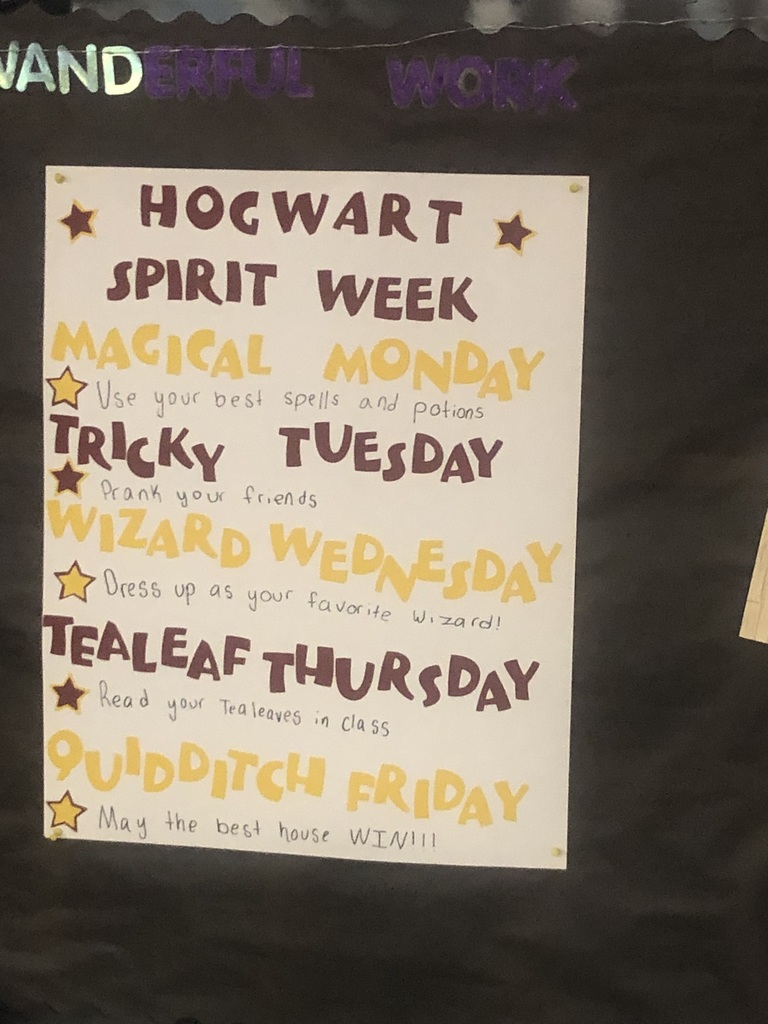 WANDERFUL WORK
HOGWART
SPIRIT WEEK
MAGICAL MONDAY
Use your best spells and potions
TRICKY TUESDAY
Prank your friends
WIZARD WEDNESDAY
Dress up as your favorite wizard!
TEALEAF THURSDAY
Read your Tealeaves in class
QUIDDITCH FRIDAY
May the best house WIN!!!